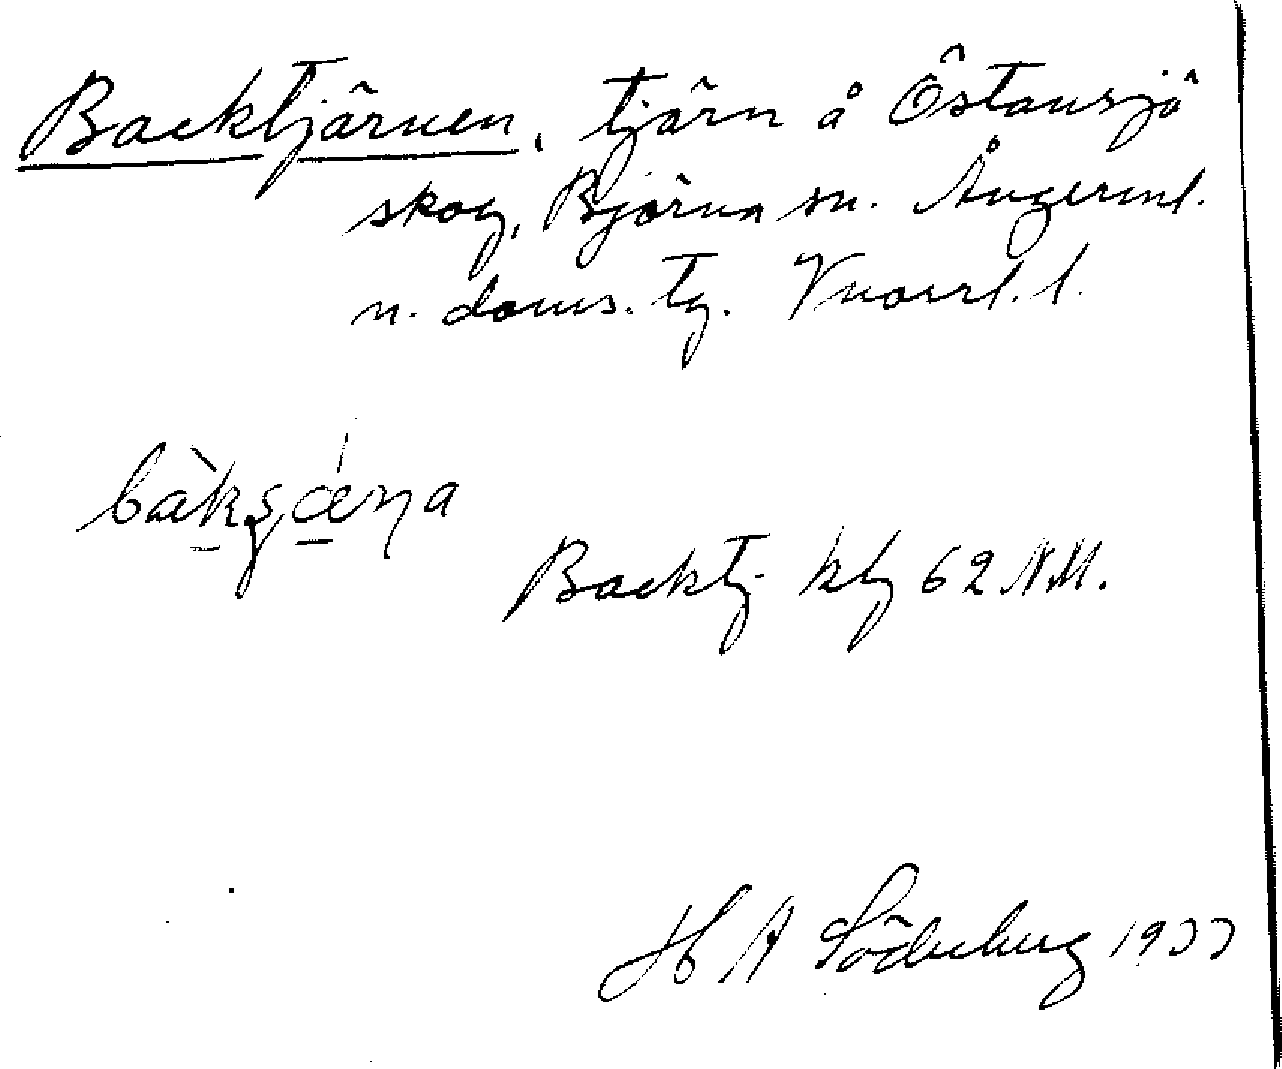 Backtjärnen, tjärn å Östansjö
skog, Björna sn. Ångerml.
n. doms. tg. Vnorrl. l.
Backtj. ktg 62 N.M.
H A Söderberg 1933